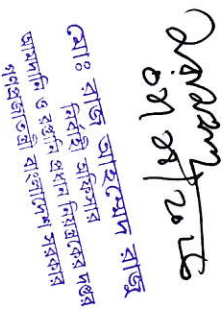 ০৭/০৪/২০২৫
মোঃ রাজু আহম্মেদ রাজু
নির্বাহী অফিসার
আমদানি ও রপ্তানি প্রধান নিয়ন্ত্রকের দপ্তর
গণপ্রজাতন্ত্রী বাংলাদেশ সরকার